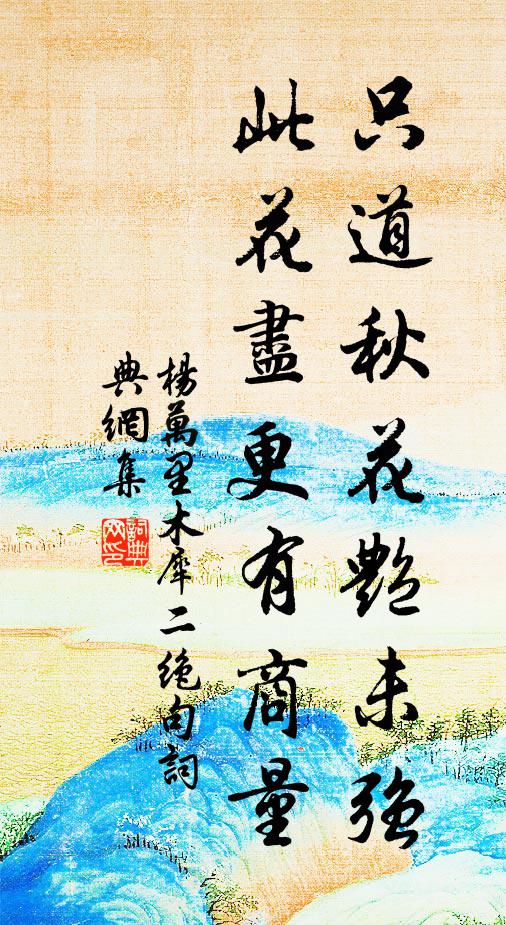 只道秋花艷未強
此花盡更有商量
楊萬里木犀二絕句詞
典網集
詞典